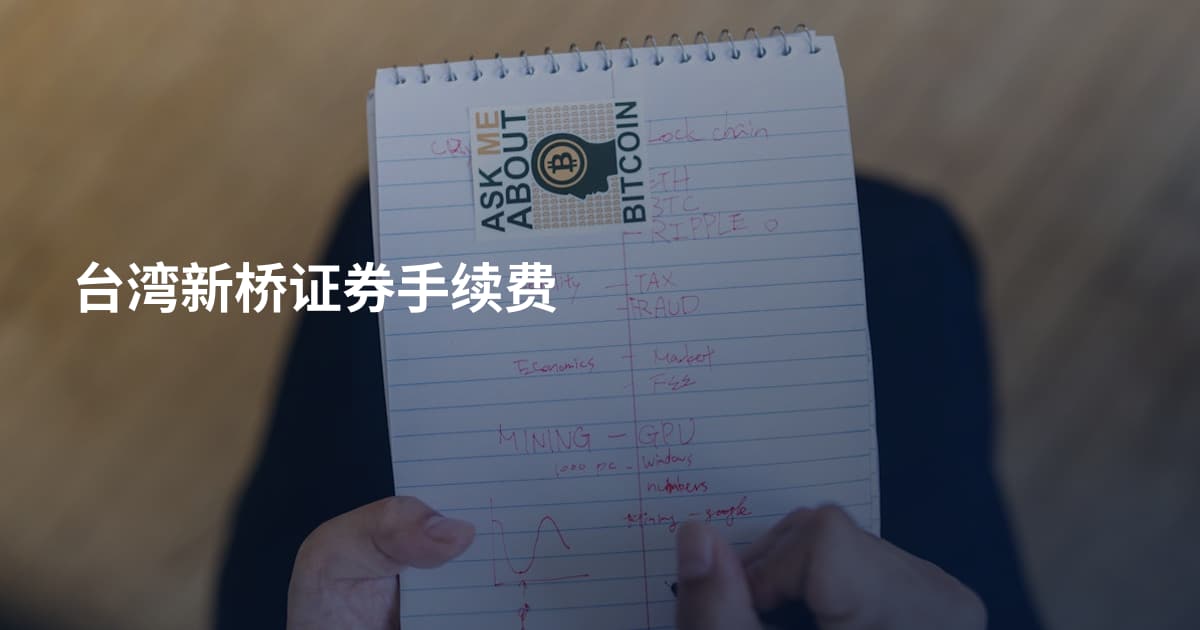 ASK ME
ABOUT
BITCOIN
Lock chain
ETH
BTC
RIPPLE
台湾新桥证券手续费
TAX
FRAUD
Economics
Market
Fee
MINING - GPU
1000 pc - Windows
numbers
Mining - google